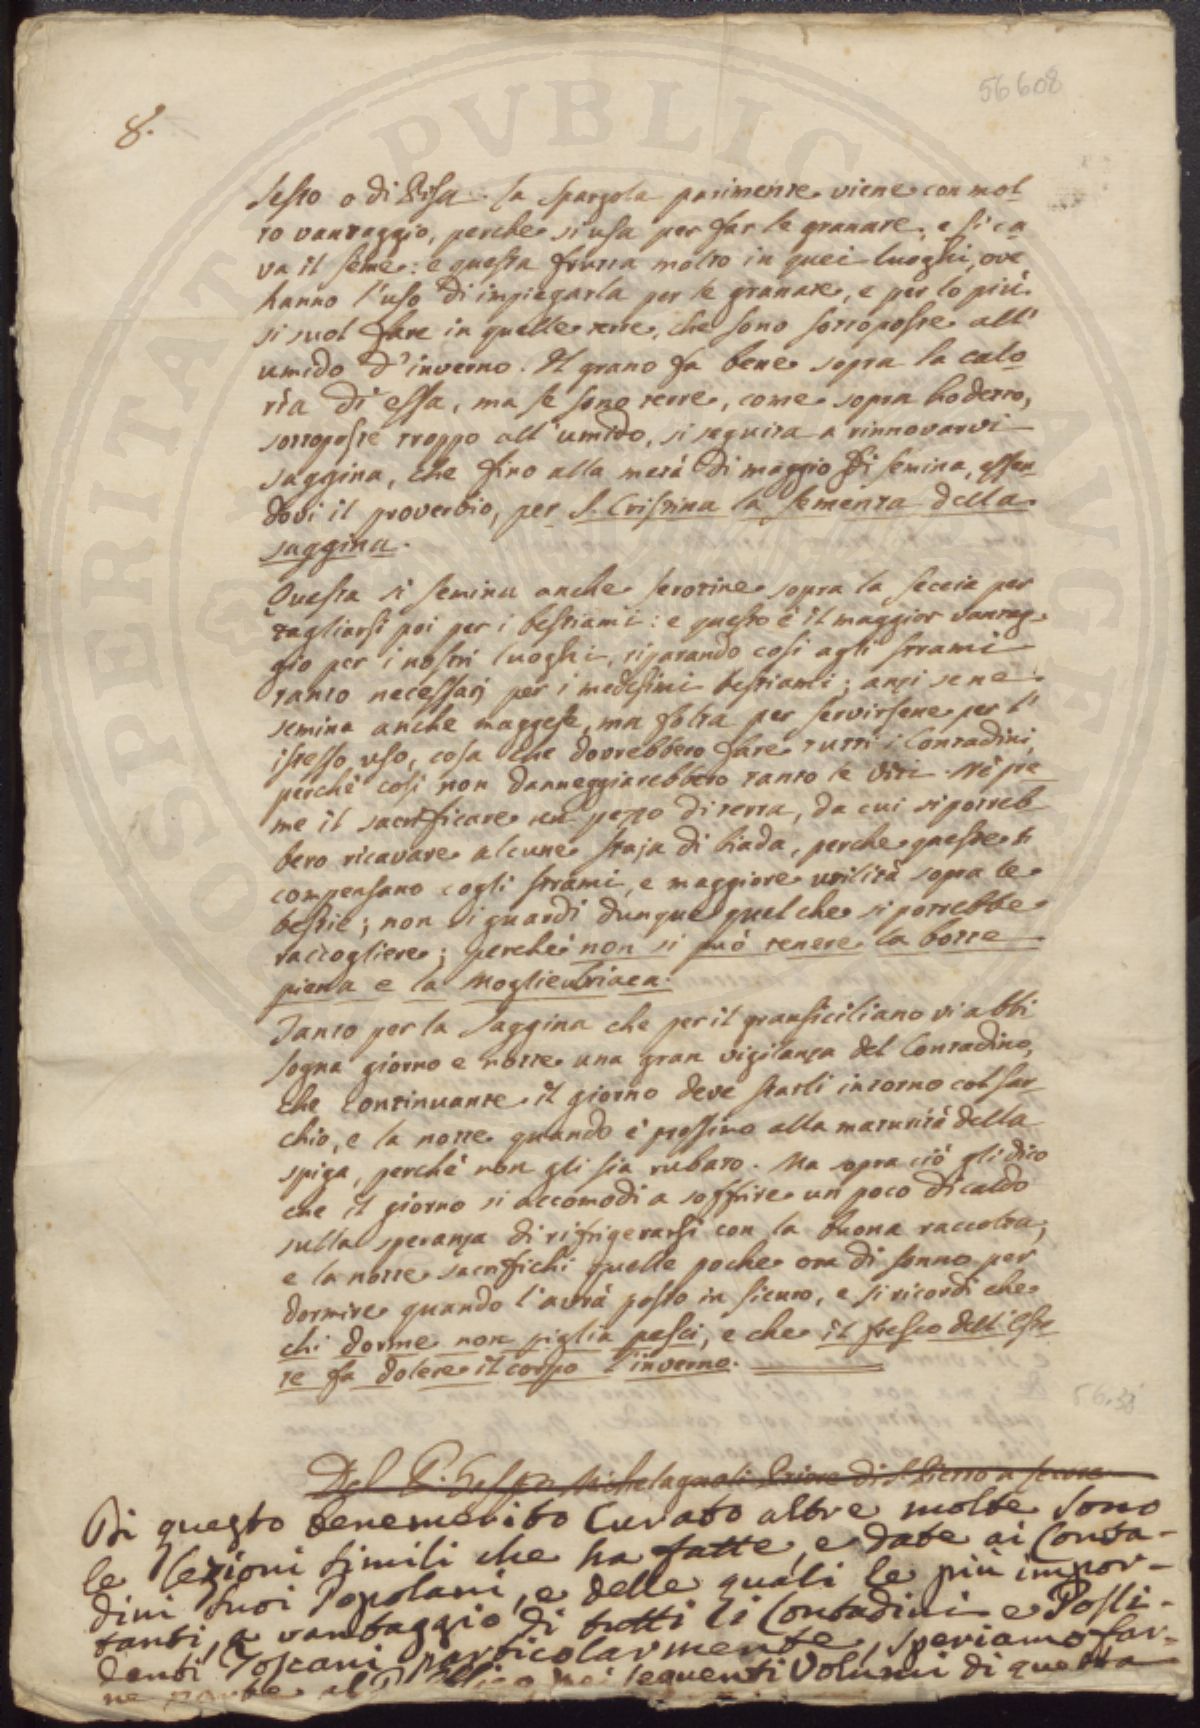 56608
8.
Sesto o di Pisa. la Spargola parimente viene con mol
to vantaggio, perche si usa per far le granate, e si ca
va il seme: e questa frutta molto in quei luoghi, ove
hanno l'uso di impiegarla per le granate, e per lo più
si suol fare in quelle terre, che sono sottoposte all'
umido d'inverno. Il grano fa bene sopra la calo
rìa di essa, ma se sono terre, come sopra ho detto,
sottoposte troppo all'umido, si seguita a rinnovarvi
saggina, che fino alla metà di maggio si semina, essen
dovi il proverbio, per S. Cristina la sementa della
saggina.
Questa si semina anche serotine sopra la seccia per
tagliarsi poi per i bestiami: e questo è il maggior vantag
gio per i nostri luoghi, riparando così agli strami
tanto necessarj per i medesimi bestiami; anzi se ne
semina anche maggese, ma folta per servirsene per l'
istesso uso, cosa che dovrebbero fare tutti i Contadini,
perchè così non danneggiarebbero tanto le viti. Nè pre
me il sacrificare un pezzo di terra, da cui si potreb
bero ricavare alcune staja di biada, perche queste si
compensano cogli strami, e maggiore utilità sopra le
bestie; non si guardi dunque quel che si potrebbe
raccogliere; perchè non si può tenere la botte
piena e la Moglie ubriaca.
Tanto per la Saggina che per il gran siciliano vi abbi
sogna giorno e notte una gran vigilanza del Contadino,
che continuante il giorno deve starli intorno col sar
chio, e la notte quando è prossimo alla maturità della
spiga, perchè non gli sia rubato. Ma sopra ciò gli dico
che il giorno si accomodi a soffrire un poco di caldo
sulla speranza di rifrigerarsi con la buona raccolta;
e la notte sacrifichi quelle poche ore di sonno per
dormire quando l'avrà posto in sicuro, e si ricordi che
chi dorme non piglia pesci, e che il fresco dell'esta
te fa dolere il corpo l'inverno.
56.38
Del P. Michelagnoli Priore di S. Pietro a
Di questo benemerito Curato altre molte sono
le lezioni simili che ha fatte, e date ai Conta-
dini suoi Popolani, e delle quali le più impor-
tanti, a vantaggio di tutti li Contadini e Possi-
denti Toscani particolarmente, speriamo far-
ne parte al Pubblico nei seguenti Volumi di questa
OSPERITATI PVBLICAE AVGE